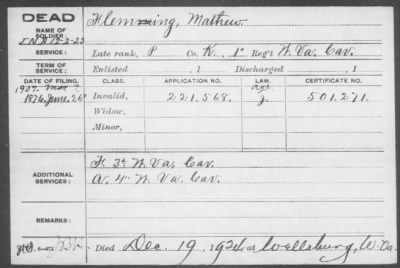 DEAD
NAME OF SOLDIER:
Flemming, Mathew
SERVICE:
Late rank, P Co. K, 1st Reg't W. Va. Cav.
TERM OF SERVICE:
Enlisted , 1 Discharged , 1
DATE OF FILING. CLASS. APPLICATION NO. LAW. CERTIFICATE NO.
1876, June 26 Invalid, 221,568. 501,211
Widow,
Minor,
ADDITIONAL SERVICES:
F. 3d W. Va. Cav.
A. 4" W. Va. Cav.
REMARKS:
Died Dec. 19, 192 at Wellsburg, W. Va.